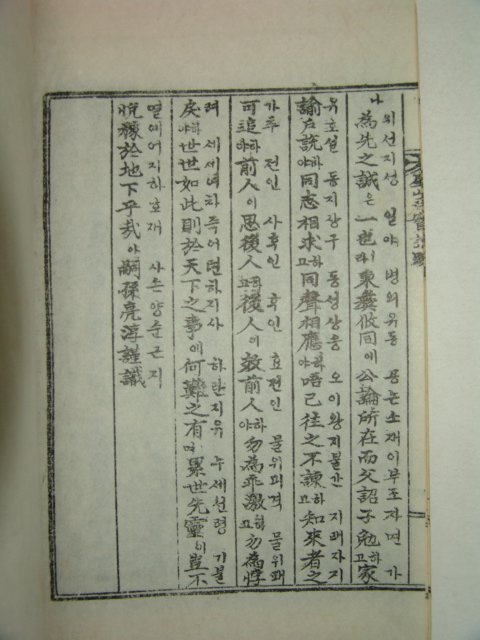 나 위선지성 일야 병의유동 공논소재이부조자면 가
為先之誠은 一也라 秉彝攸同에 公論所在而父詔子勉하고 家
유호설 동지상구 동성상응 오이왕지불간 지래자지
諭戶說하야 同志相求하고 同聲相應하야 唔已往之不諫하고 知來者之
가추 전인 사후인 후인 효전인 물위괴격 물위패
可追하야 前人이 思後人하고 後人이 效前人하야 勿為乖激하고 勿為悖
려 세세여차즉어텬하지사 하란지유 누세선령 기불
戾하야 世世如此則於天下之事에 何難之有며 累世先靈이 豈不
열예어지하호재 사손양순근지
悅豫於地下乎哉아 嗣孫亮淳謹識